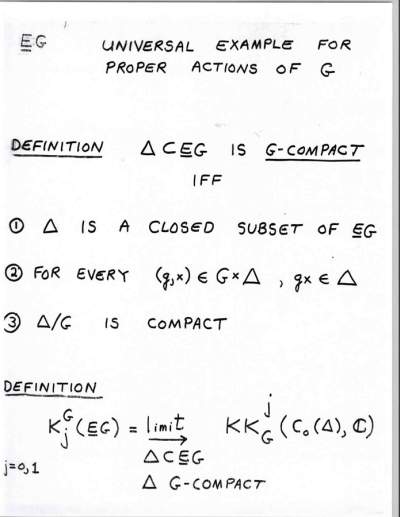 E̲G UNIVERSAL EXAMPLE FOR
PROPER ACTIONS OF G
DEFINITION Δ ⊂ E̲G IS G-COMPACT
IFF
① Δ IS A CLOSED SUBSET OF E̲G
② FOR EVERY (g,x) ∈ G×Δ , gx ∈ Δ
③ Δ/G IS COMPACT
DEFINITION
K_j^G (E̲G) = limit KK_G^j (C₀(Δ), ℂ)
j=0,1 Δ ⊂ E̲G
Δ G-COMPACT